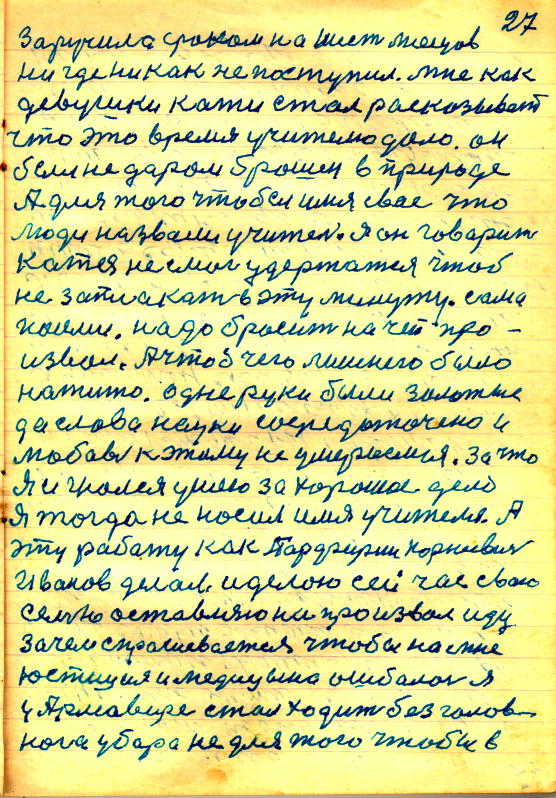 27
Заручила сроком на шест месецов
ни где никак не поступил. мне как
девушки кати стал расказыват
что это время учителю дало. он
был не даром брошен в природе
А для того чтобы имя свае что
люди назвали учител. Я он говарит
катя не смог удержатся чтоб
не заплакат в эту минуту. сама
пойми. надо бросит на чет про –
извол. А чтоб чего лишнего было
нажито. одне руки были золотые
да слова науки сосредоточено и
любов к этому не умерьемся. За что
Я и гнался умею за хорошое дело
Я тогда не носил имя учителя. А
эту работу как Парфирий корневич
Иванов делал. и делою сей час сваю
семъю оставляю на произвол иду
зачем спрашевается чтобы на мне
юстиция и медицына ошибалос я
у Армавире стал ходит без голов-
нога убара не для того чтобы в